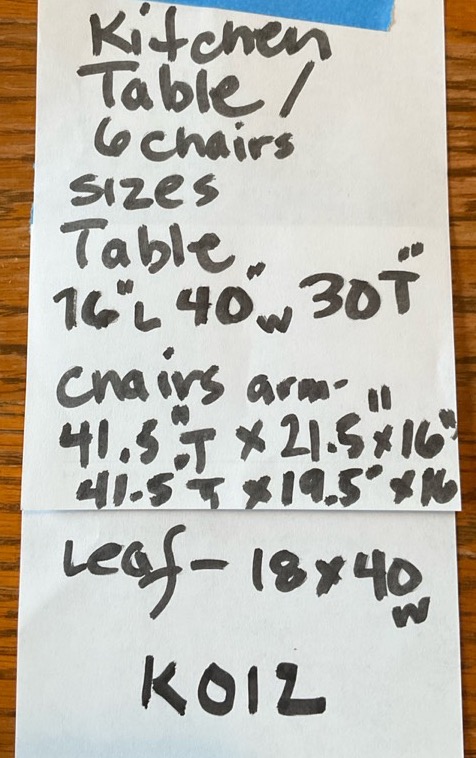 Kitchen
Table /
6 chairs
sizes
Table
76"L 40"W 30T"
chairs arm-
41.5"T x 21.5" x 16"
41.5"T x 19.5" x 16
Leaf - 18 x 40
W
K012